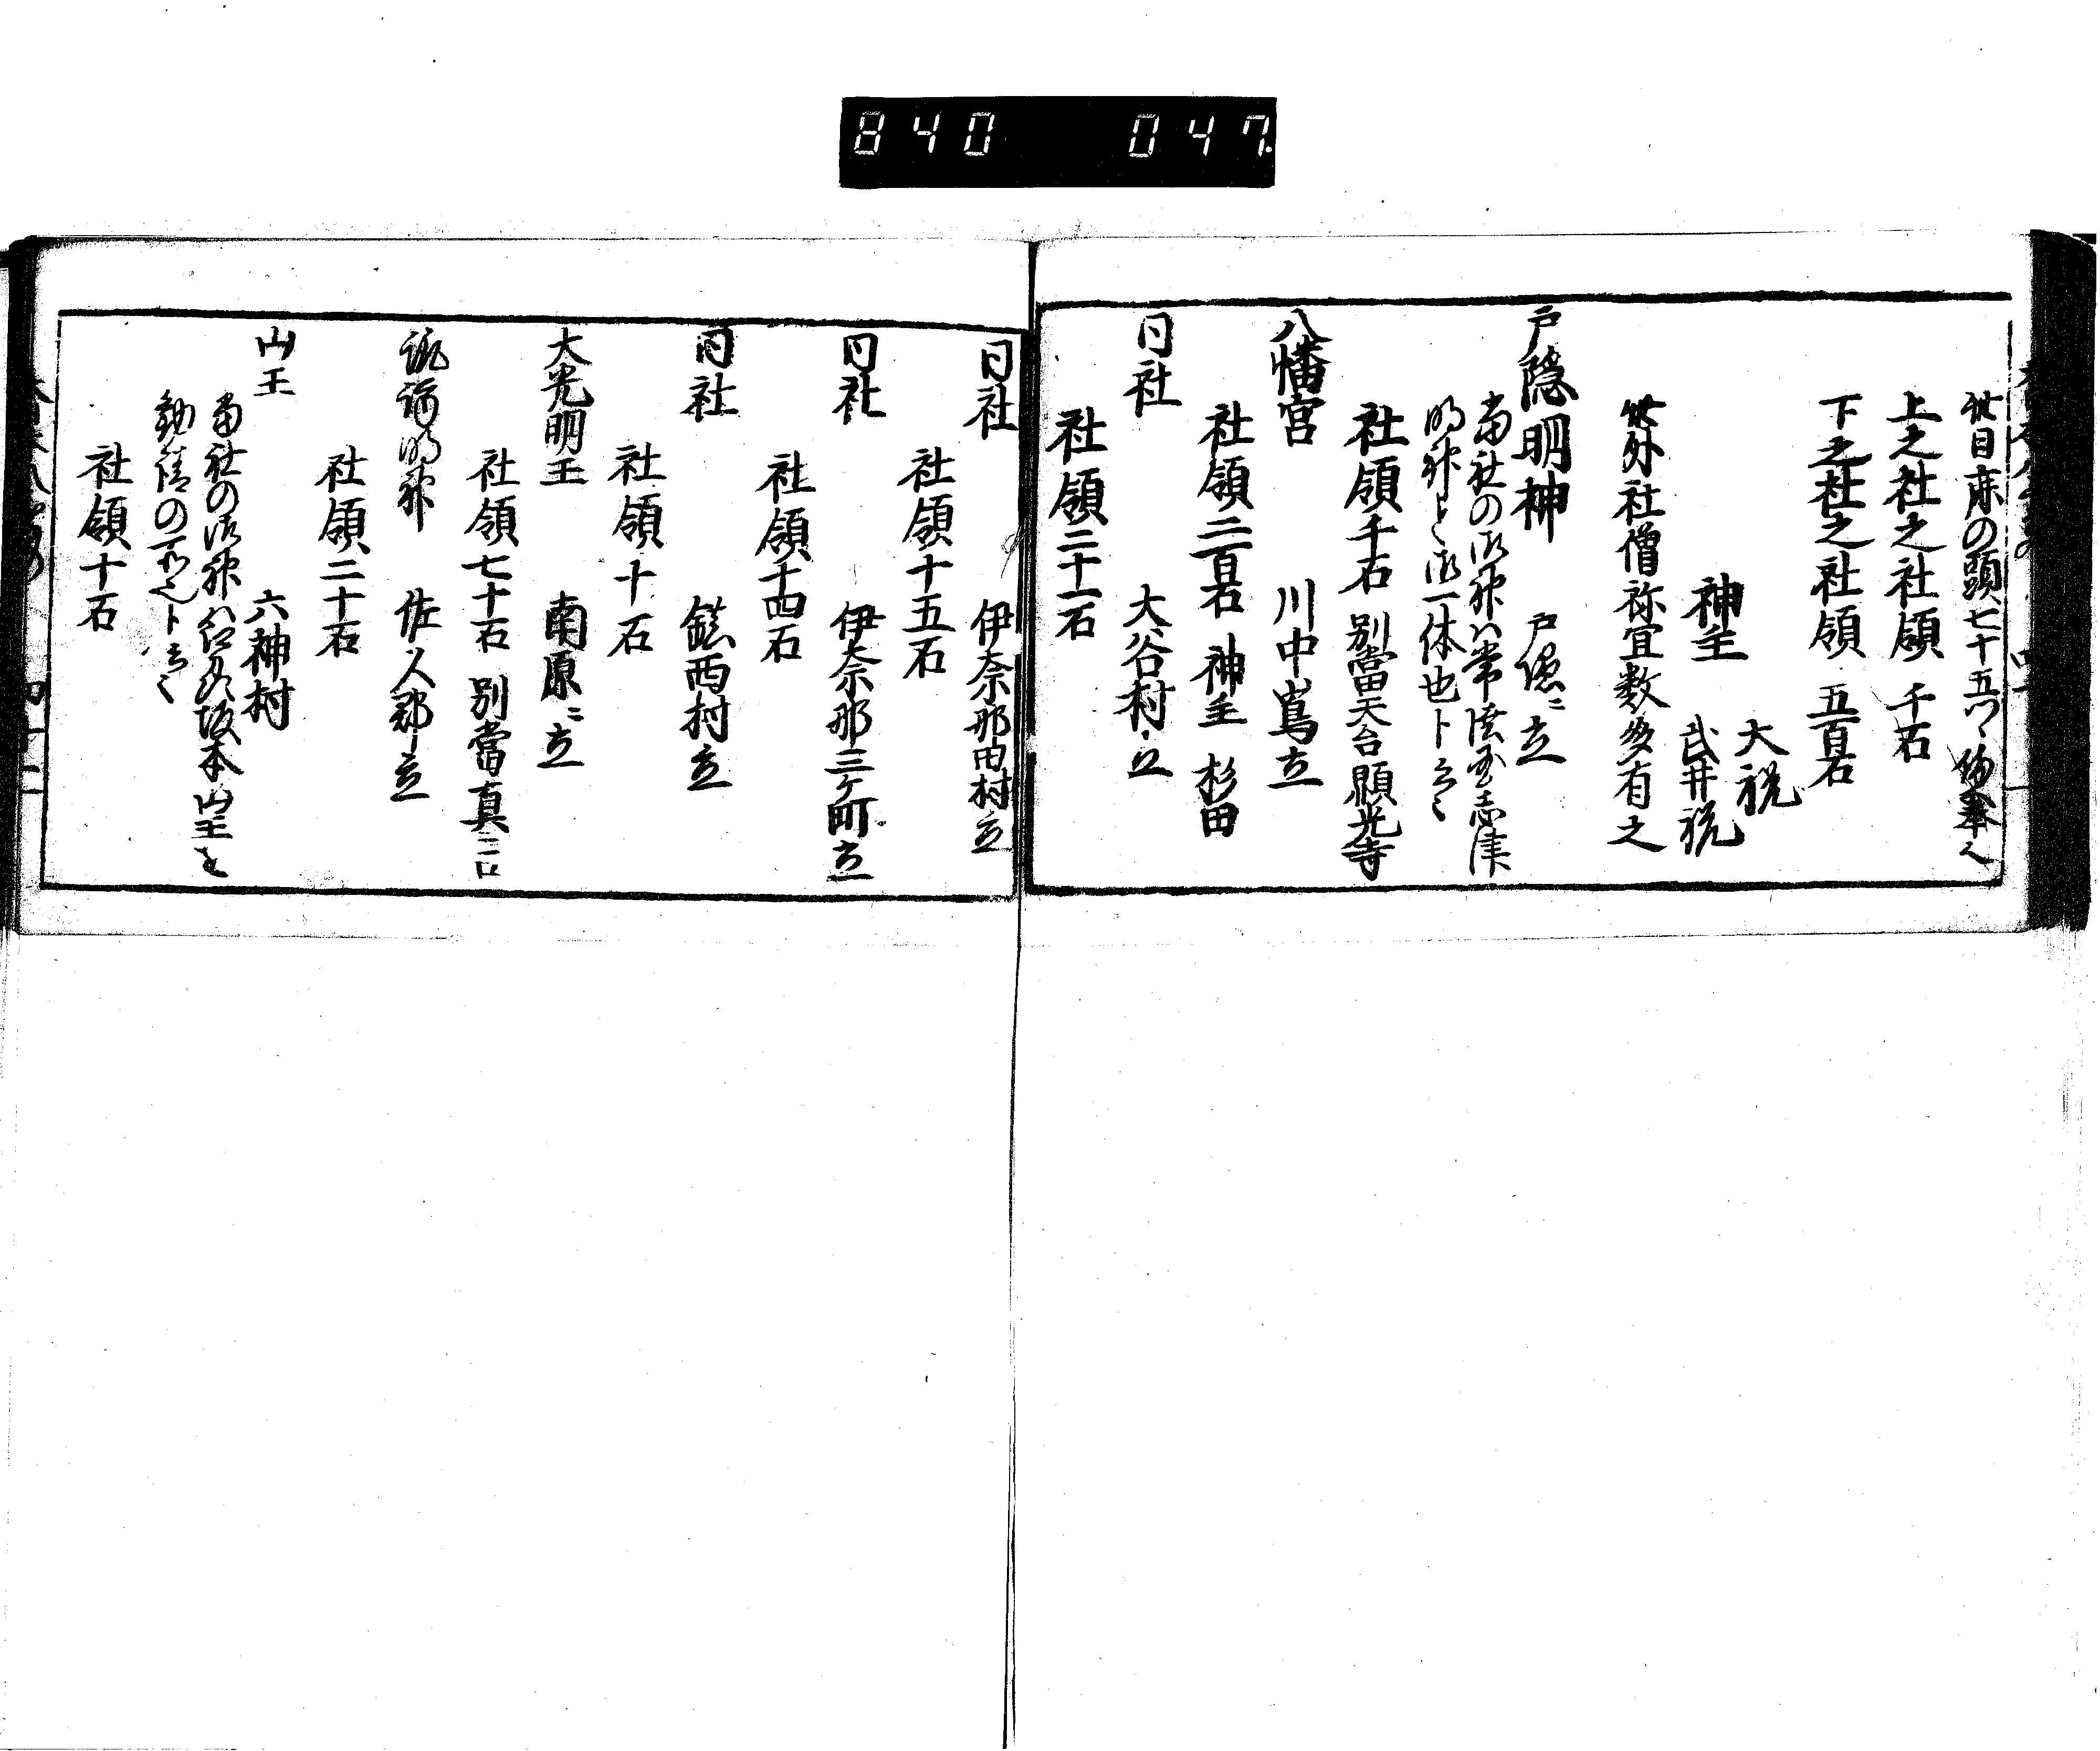 840 047
此目床の頭七十五ツヽ備奉ル
上之社之社領 千石
下之社之社領 五百石
大祝
神主 武井祝
此外社僧祢宜数多有之
戸隠明神 戸隠ニ立
当社の御神ハ常陸国志津
明神と御一体也ト云々
社領千石 別當天台顕光寺
八幡宮 川中嶌立
社領二百石 神主 杉田
同社 大谷村立
社領二十一石
同社 伊奈那田村立
社領十五石
同社 伊奈那三ケ町立
社領十四石
同社 西村立
社領十石
大光明王 南原ニ立
社領七十石 別當真言
諏訪明神 佐久郡立
社領二十石
山王 六神村
当社の御神ハ江州坂本山王を
勧請の所也ト云々
社領十石